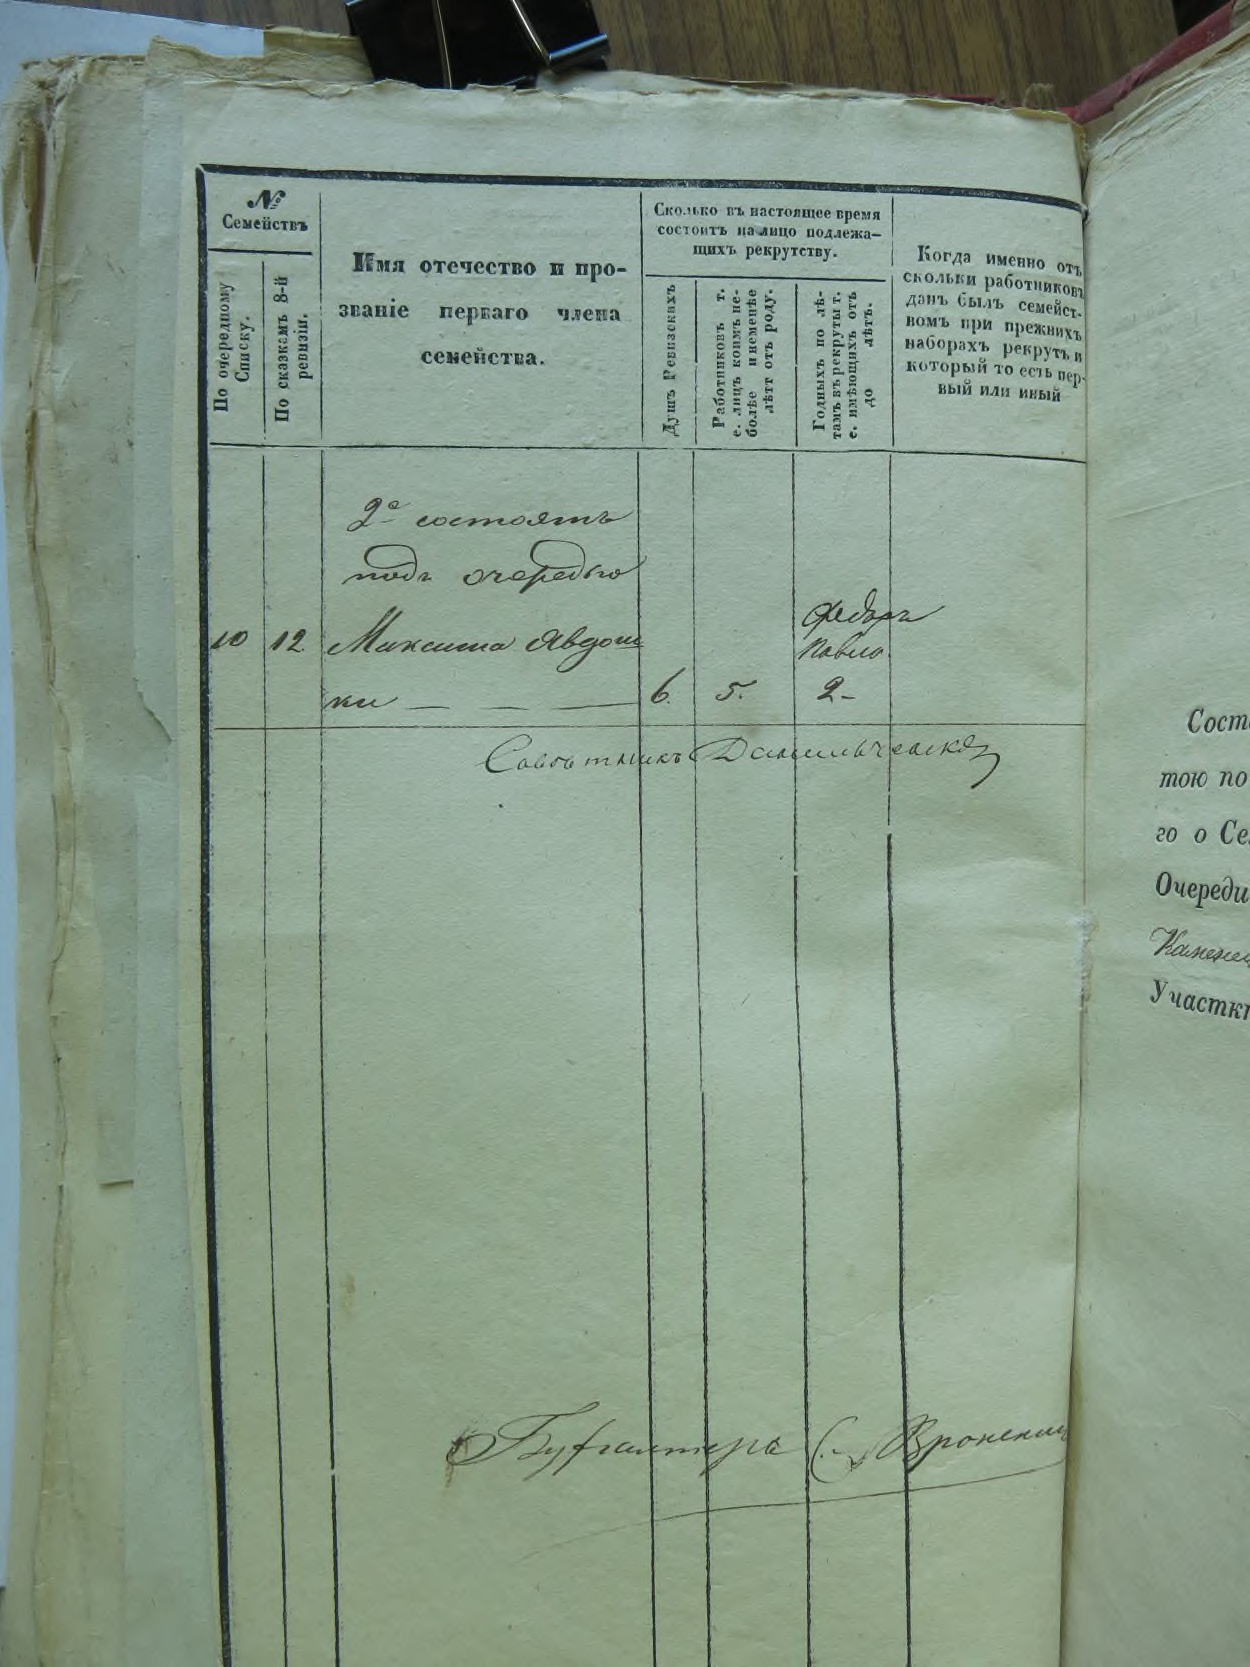 №
Семействъ
По очередному
Списку.
По сказкамъ 8-й
ревизіи.
Имя отечество и про-
званіе перваго члена
семейства.
Сколько въ настоящее время
состоитъ на лицо подлежа-
щихъ рекрутству.
Душъ Ревизскихъ
Работниковъ т.
е. лицъ коимъ не-
болѣе и неменѣе
лѣтт отъ роду.
Годныхъ по лѣ-
тамъ въ рекруты т.
е. имѣющихъ отъ
до лѣтъ.
Когда именно отъ
скольки работниковъ
данъ былъ семейст-
вомъ при прежнихъ
наборахъ рекрутъ и
который то есть пер-
вый или иный
2е состоятъ
подъ очередью
Федоръ
10 12 Максима Явдош Павло
ки — — — 6. 5. 2-
Совѣтникъ
Бухгалтеръ Вронский
Сост
тою по
го о Се
Очереди
Каменец
Участк